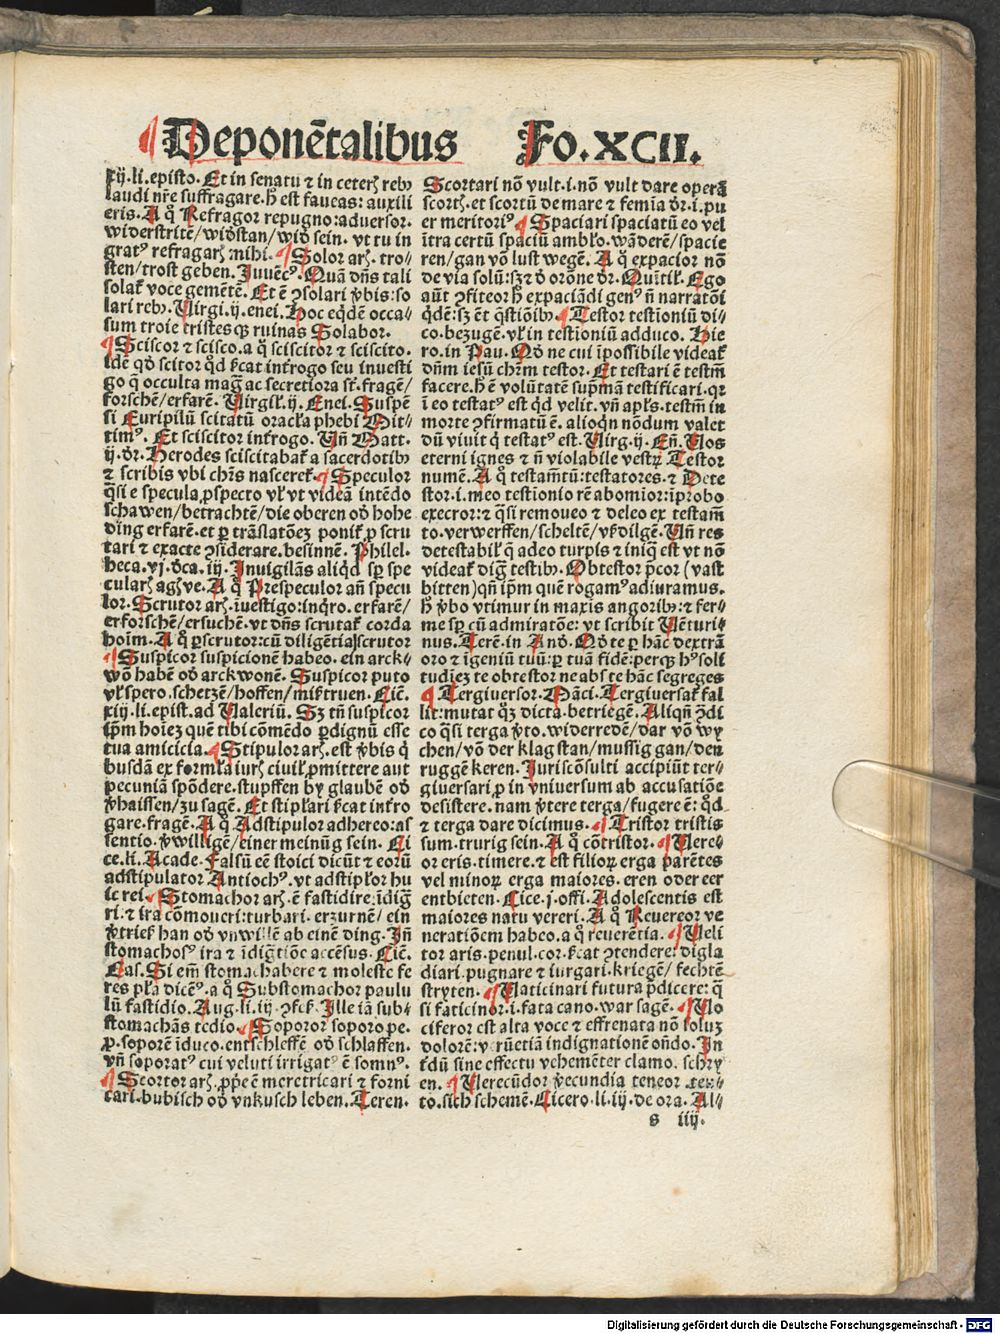 Deponētalibus Fo.XCII.
xij.li.episto.Et in senatu ⁊ in ceterꝭ rebꝫ
laudi nr̄e suffragare.h̄ est faueas: auxili
eris.A q̊ Refragor repugno:aduersor.
widerstritē/wid̕stan/wid̕ sein. vt tu in
gratꝰ refragarꝭ mihi. ¶ Solor arꝭ. tro⸗
sten/trost geben. Juuēcꝰ. Quā dn̄s tali
solat᷒ voce gemētē. Et ē ꝯsolari v̕bis: so
lari rebꝫ. Virgi.ij.enei. Hoc eqdē occa⸗
sum troie tristes qꝫ ruinas Solabor.
¶ Sciscor ⁊ scisco.a q̊ sciscitor ⁊ sciscito.
Idē qd̕ scitor
go q̄ occulta mag ac secretiora st᷒.fragē/
forschē/erfarē. Virgil᷒.ij. Enei. Suspē
si Euripilū scitatū oracl᷒a phebi Mit⸗
timꝰ. Et sciscitor int᷒rogo. Vn̄ Matt.
ij.dr̄. Herodes sciscitabat᷒ a sacerdotibꝫ
⁊ scribis vbi chr̄s nasceret᷒. ¶ Speculor
q̄si e specula ꝓspecto vl᷒ vt videā intēdo
schawen/betrachtē/die oberen od̕ hohe
ding erfarē.et ꝑ trāslatōeꝫ ponit᷒ ꝓ scru
tari ⁊ exacte ꝯsiderare.besinnē. Philel⸗
heca.vj.dc̄a.iij. Inuigilās aliqd sp̄ spe
cularꝭ A q̊ Prespeculor an̄ specu
lor. Scrutor arꝭ.īuestigo:inqro.erfarē/
erforschē/ersuchē.vt dn̄s scrutat᷒ corda
hoīm. A q̊ ꝑscrutor:cū diligētia scrutor
¶ Suspicor suspicionē habeo. ein arck⸗
wō habē od̕ arckwonē. Suspicor puto
vl᷒ spero.schetzē/hoffen/mit᷒truen. Ciē.
xiij.li.epist.ad Valeriū. Sꝫ tn̄ suspicor
ip̄m hoīeꝫ quē tibi cōmēdo ꝑdignū esse
tua amicicia. ¶ Stipulor arꝭ.est v̕bis q̊
busdā ex forml᷒a iurꝭ ciuil᷒ ꝓmittere aut
pecuniā spōdere.stupffen by glaubē od̕
v̕haissen/zu sagē. Et stipl᷒ari int᷒ro
gare.fragē. A q̊ Adstipulor adhereo:as
sentio.v̕willigē/einer meinūg sein. Ci
ce.li. Acade. Falsū eē stoici dicūt ⁊ eorū
adstipulator Antiochꝰ.vt adstipl᷒or hu
ic rei. ¶ Stomachor arꝭ.ē fastidire.īdig
ri.⁊ ira cōmoueri:turbari. erzurnē/ ein
v̕triet᷒ han od̕ vnwillē ab einē ding. In̄
stomachosꝰ ira ⁊ accēsus. Ciē.
Fas. Si em̄ stomachabere ⁊ moleste fe
res pl᷒a dicēꝰ.a q̊ Substomachor paulu
lū fastidio. Aug.li.iij. Ille iā sub⸗
stomachās tedio. ¶ Soporor soporo pe.
ꝓ.soporē īduco.entschleffē od̕ schlaffen.
vn̄ soporatꝰ cui veluti irrigatꝰ ē somnꝰ.
¶ Scortor arꝭ.ꝓp̄e ē meretricari ⁊ forni
cari.bubisch od̕ vnkusch leben. Teren.
Scortari nō vult.i.nō vult dare operā
scortꝭ.et scortū de mare ⁊ femīa dr̄.i.pu
er meritoriꝰ. ¶ Spaciari spaciatū eo vel
ītra certū spaciū ambl᷒o.wāderē/spacie
ren/gan vō lust wegē. A q̊ expacior nō
de via solū:sꝫ ⁊ d̕ orōne dr̄. Quitil᷒. Ego
aūt ꝯfiteor h̄ expaciādi genꝰ n̄ narratōi
qdē:sꝫ ēt q̄stiōibꝫ. ¶ Testor testioniū di⸗
co.bezugē.vl᷒ in testioniū adduco. Hie
ro.in Pau. Qd̕ ne cui īpossibile videat᷒
dn̄m iesū chr̄m testor. Et testari ē testm̄
facere.h̄ ē volūtatē supmā testificari.qr
ī eo testatꝰ est qd velit.vn̄ apl᷒s.testm̄ in
morte ꝯfirmatū ē. alioqn nōdum valet
dū viuit q̊ testatꝰ est. Virg.ij. En̄. Vos
eterni ignes ⁊ n̄ violabile vestrꝝ Testor
numē. A q̊ testamtū:testatores.⁊ Dete
stor.i.meo testionio rē abomior:īprobo
execror:⁊ q̄si remoueo ⁊ deleo ex testam̄
to.verwerffen/scheltē/v̕t᷒dilgē. Vn̄ res
detestabil᷒ q̄ adeo turpis ⁊ iniq̄ est vt nō
videat᷒ dig testibꝫ. Obtestor p̄cor (vast
bitten) qn̄ ip̄m quē rogamꝰ adiuramus.
h̄ v̕bo vtimur in maxīs angoribꝫ:⁊ fer⸗
me sp̄ cū admiratōe: vt scribit Vēturi⸗
nus. Terē.in And̕. Qd̕ te ꝑ hāc dextrā
oro ⁊ īgeniū tuū:ꝑ tuā fidē:perqꝫ hꝰ soli
tudieꝫ te obtestor ne abs te hāc segreges
¶ Tergiuersor. Māci. Tergiuersat᷒ fal
lit:mutat qꝫ dicta.betriegē. Aliqn̄ ꝯdi
co q̄si terga v̕to.widerredē/dar vō wy
chen/vō der klag stan/mussig gan/den
ruggē keren. Iuriscōsulti accipiūt ter⸗
giuersari ꝓ in vniuersum ab accusatiōe
desistere.nam v̕tere terga/fugere ē: qd
⁊ terga dare dicimus. ¶ Tristor tristis
sum.trurig sein. A q̊ cōtristor. ¶ Vere⸗
or eris.timere.⁊ est filioꝝ erga parētes
vel minoꝝ erga maiores. eren oder eer
entbieten. Cice.j.offi. Adolescentis est
maiores natu vereri. A q̊ Reuereor ve
neratiōem habeo.a q̊ reuerētia. ¶ Veli
tor aris.penul.cor. ꝯtendere:digla
diari.pugnare ⁊ iurgari.kriegē/ fechtē
stryten. ¶ Vaticinari futura p̄dicere: q̄
si faticinor.i.fata cano.war sagē. ¶ Vo
ciferor est alta voce ⁊ effrenata nō soluꝫ
dolorē:verūetiā indignationē on̄do. In
t᷒dū sine effectu vehemēter clamo. schry
en. ¶ Verecūdor v̕ecundia teneor
to.sich schemē. Cicero.li.iij.de ora. Al⸗
s iiij.
Digitalisierung gefördert durch die Deutsche Forschungsgemeinschaft - DFG